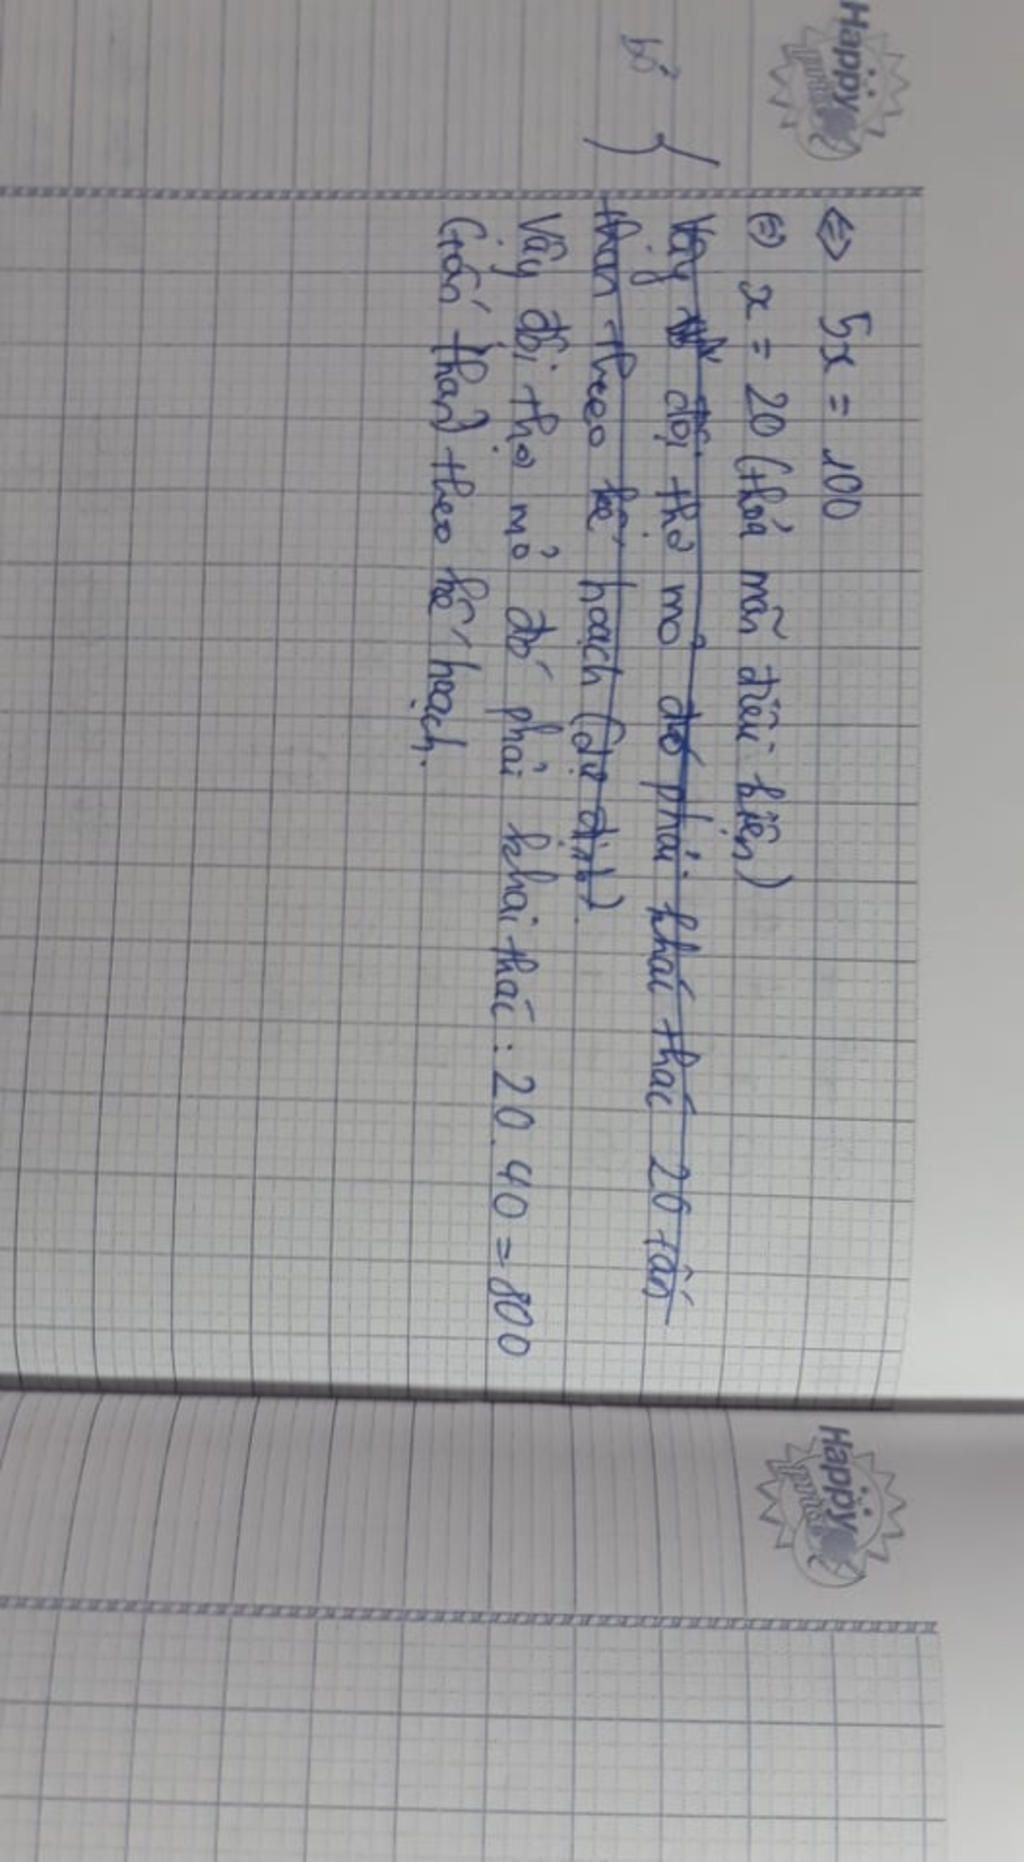 Happy
⇔ 5x = 100
⇔ x = 20 (thỏa mãn điều kiện)
bỏ {
Vậy đội thợ mỏ đó phải khai thác 20 tấn
than theo kế hoạch (dự định).
Vậy đội thợ mỏ đó phải khai thác : 20.40 = 800
(tấn than) theo kế hoạch.
Happy